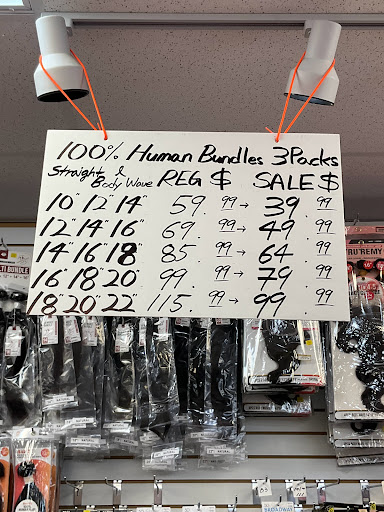 100% Human Bundles 3Packs
Straight & Body Wave REG $ SALE $
10" 12" 14" 59.99 → 39.99
12" 14" 16" 69.99 → 49.99
14" 16" 18" 85.99 → 64.99
16" 18" 20" 99.99 → 79.99
18" 20" 22" 115.99 → 99.99